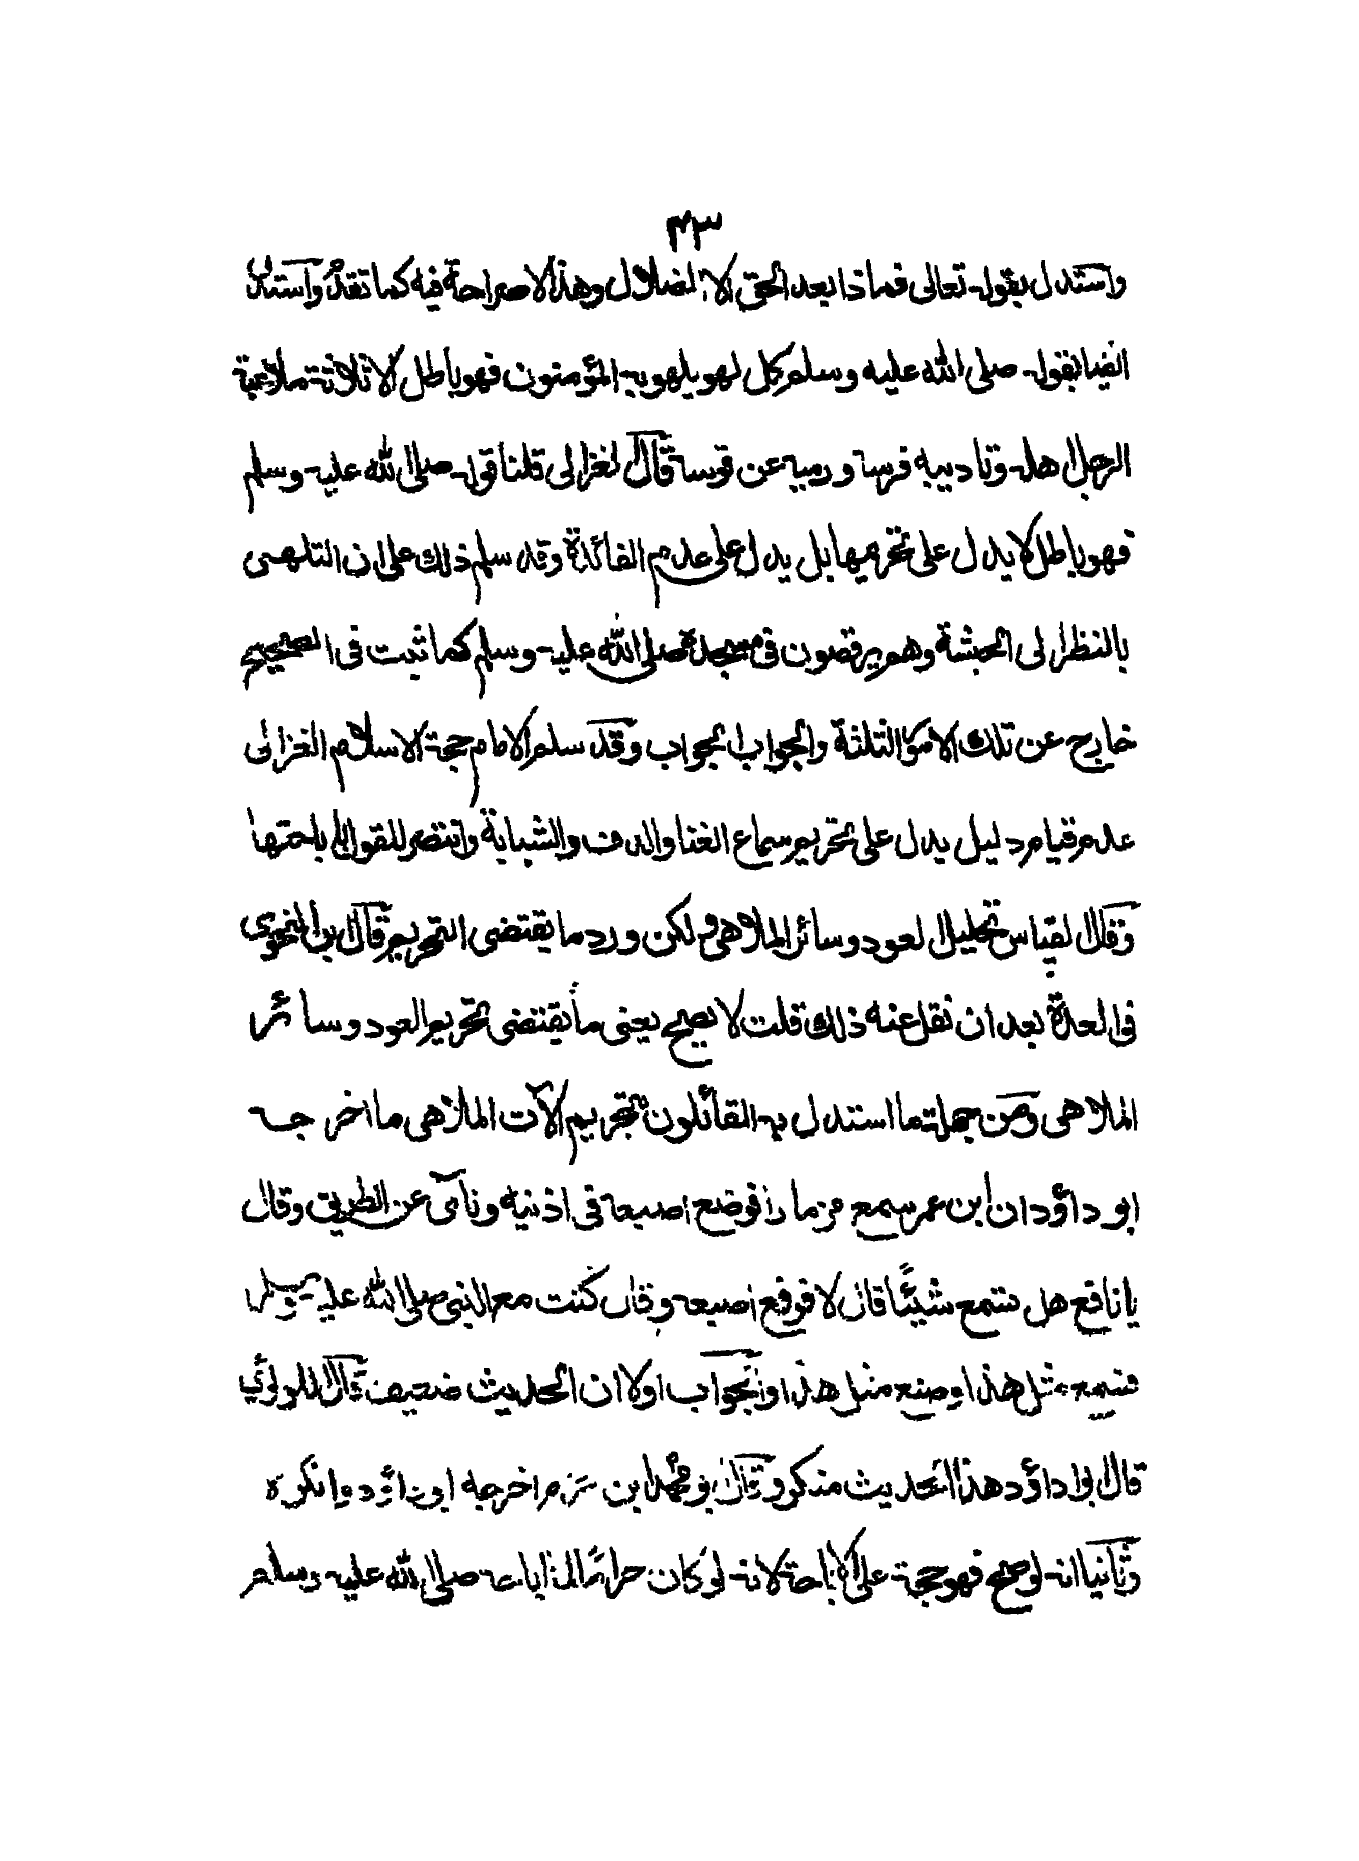 ٤٣
واستدل بقوله تعالى فماذا بعد الحق الا الضلال وهذا لا صراحة فيه كما تقدم واستدل
ايضا بقوله صلى الله عليه وسلم كل لهو يلهو به المؤمنون فهو باطل الا ثلاثة ملاعبة
الرجل اهله وتاديبه فرسه ورميه عن قوسه قال الغزالى قلنا قوله صلى الله عليه وسلم
فهو باطل لا يدل على تحريمها بل يدل على عدم الفائدة وقد سلم ذلك على ان التلهى
بالنظر الى الحبشة وهم يرقصون فى مسجده صلى الله عليه وسلم كما ثبت فى الصحيح
خارج عن تلك الامور الثلثة والجواب الجواب وقد سلم الامام حجة الاسلام الغزالى
عدم قيام دليل يدل على تحريم سماع الغنا والدف والشبابة وانتصر للقول باباحتها
وقال القياس تحليل العود وسائر الملاهى ولكن ورد ما يقتضى التحريم قال ابن النحوى
فى العدة بعد ان نقل عنه ذلك قلت لا يصح يعنى ما يقتضى تحريم العود وسائر
الملاهى ومن جملة ما استدل به القائلون بتحريم الآت الملاهى ما اخرجه
ابو داؤد ان ابن عمر سمع مزمارا فوضع اصبعه فى اذنيه ونآى عن الطريق وقال
يا نافع هل تسمع شيئًا قال لا فرفع اصبعه وقال كنت مع النبى صلى الله عليه وسلم
فسمع مثل هذا وصنع مثل هذا والجواب اولا ان الحديث ضعيف قال اللولوئي
قال ابو داؤد هذا الحديث منكر وقال ابو محمد ابن حزم اخرجه ابو داؤد وانكره
وثانيا انه لو صح فهو حجة على الاباحة لانه لو كان حرامًا لما اباحه صلى الله عليه وسلم